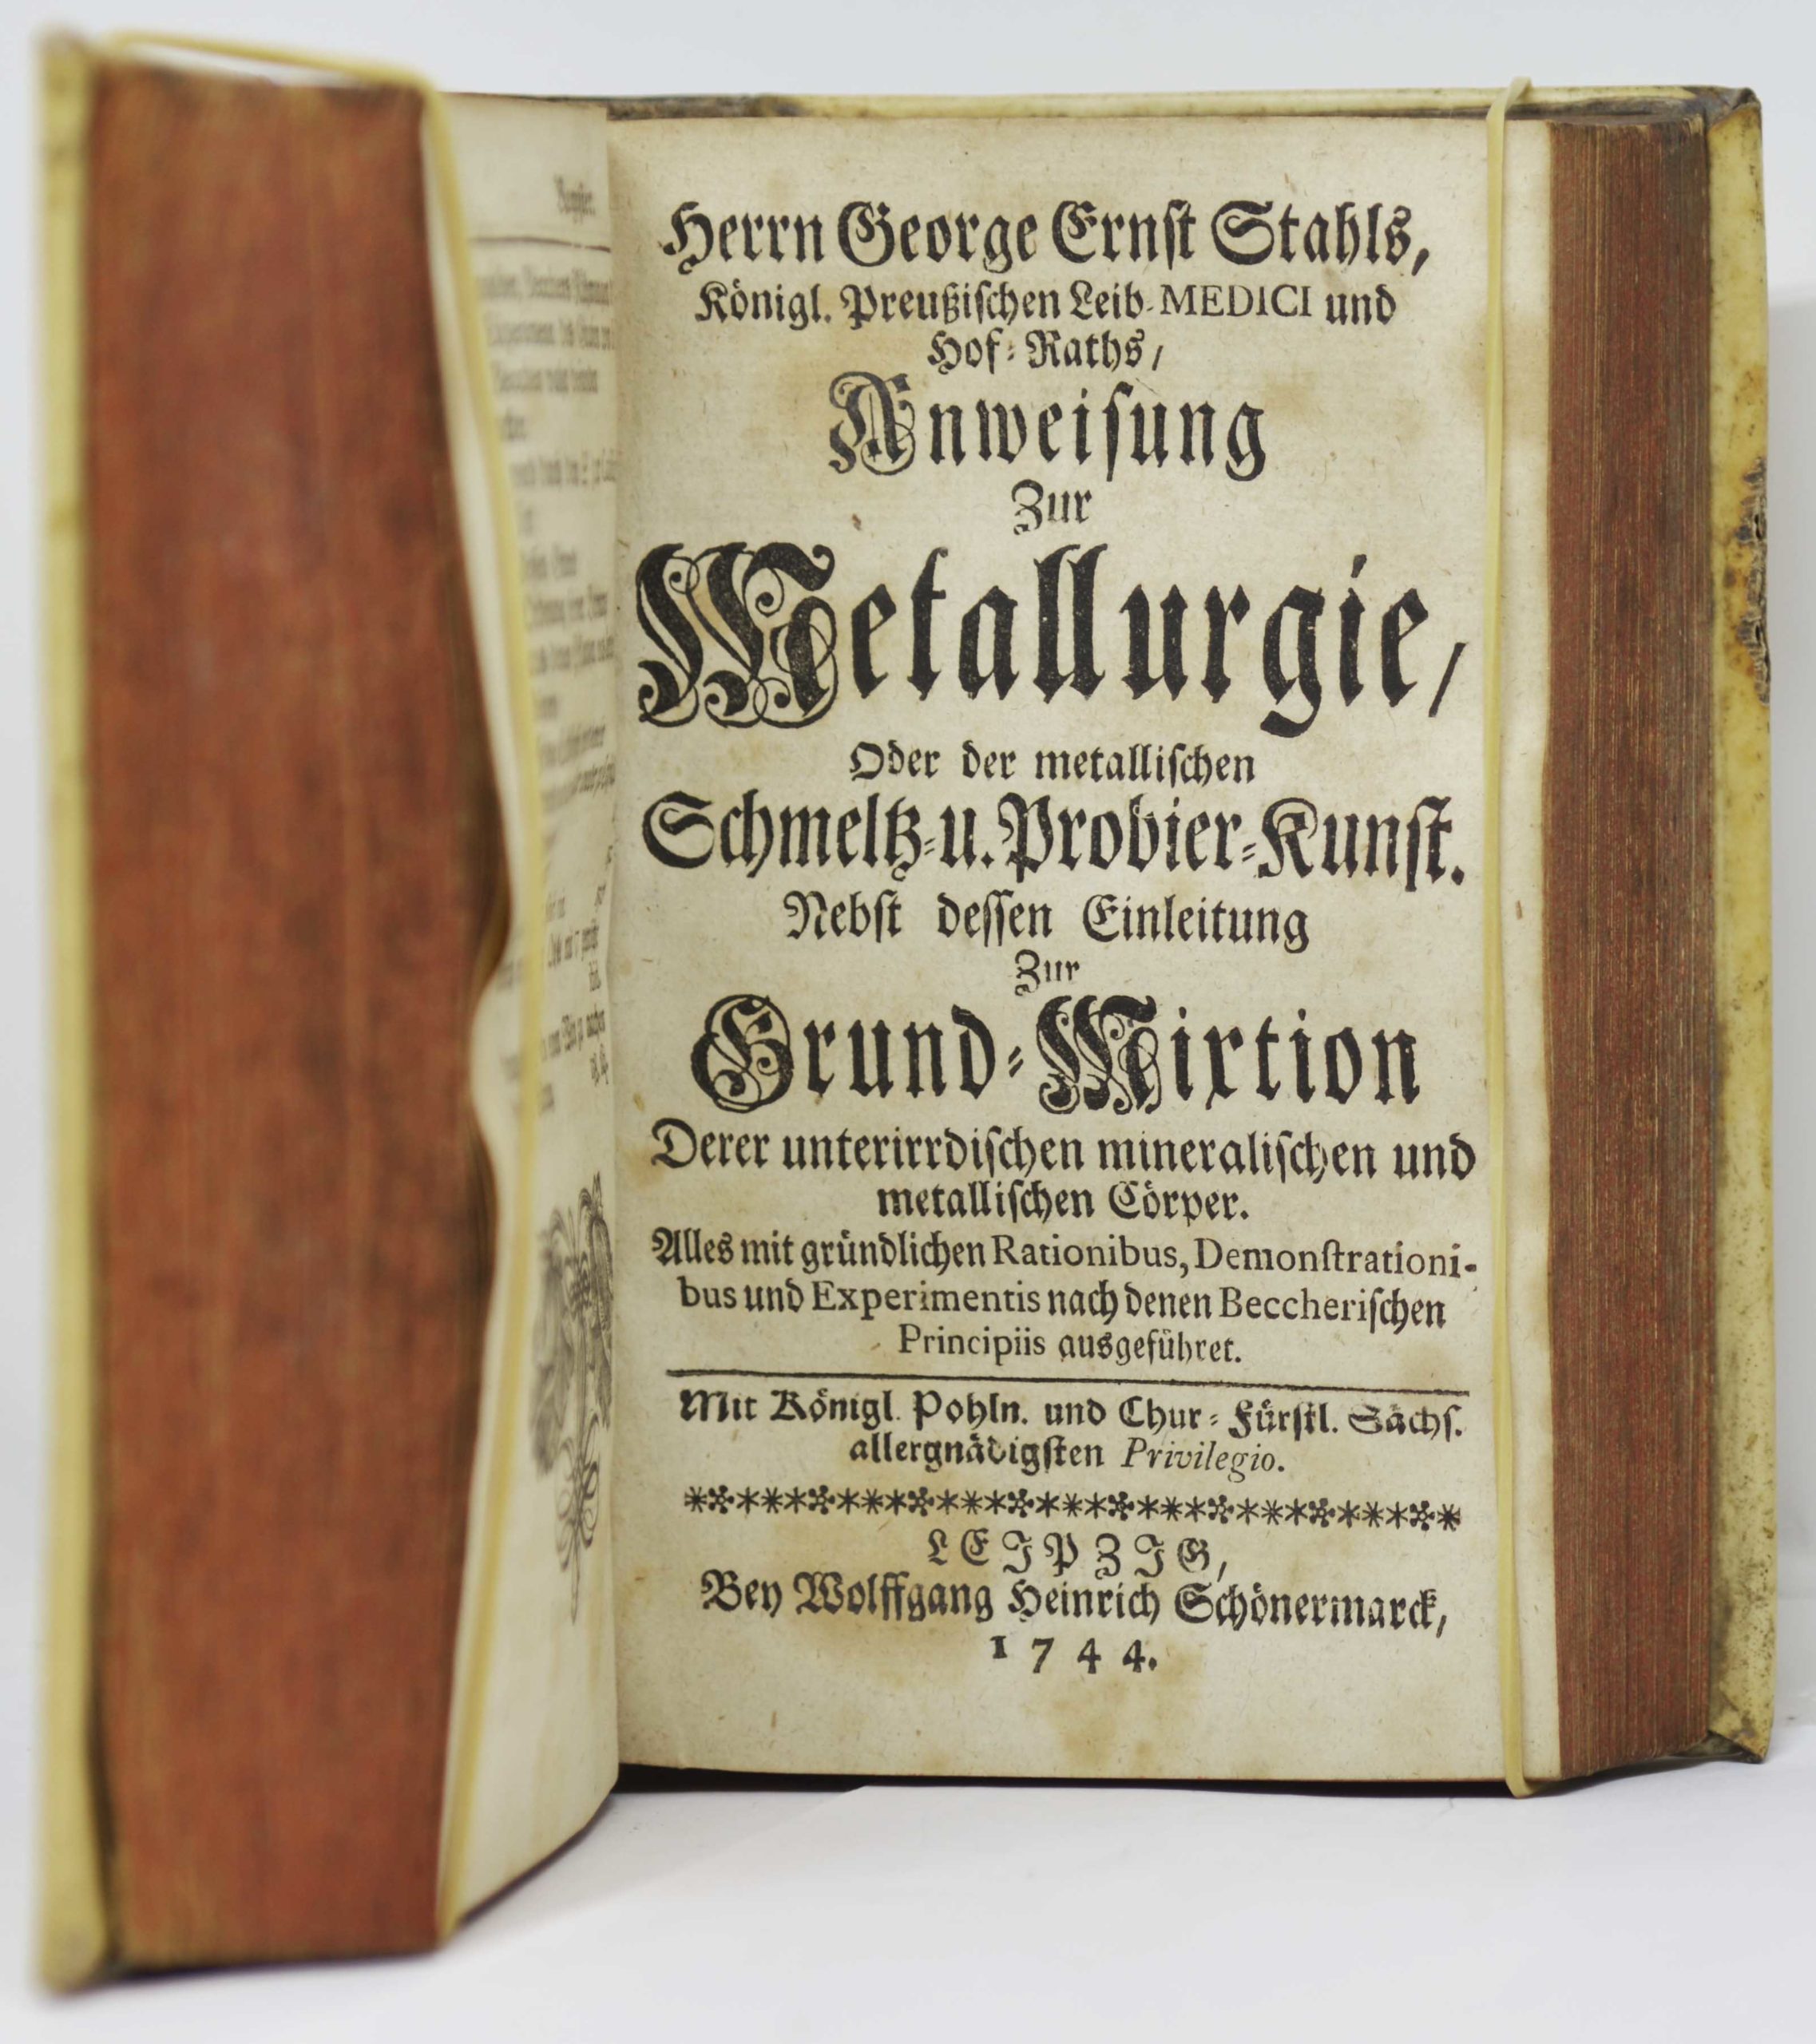 Herrn George Ernſt Stahls,
Königl. Preußiſchen Leib-MEDICI und
Hof-Raths/
Anweiſung
Zur
Metallurgie/
Oder der metalliſchen
Schmeltz-u. Probier-Kunſt.
Nebſt deſſen Einleitung
Zur
Grund-Mixtion
Derer unterirrdiſchen mineraliſchen und
metalliſchen Cörper.
Alles mit gründlichen Rationibus, Demonſtrationi-
bus und Experimentis nach denen Beccheriſchen
Principiis ausgeführet.
Mit Königl. Pohln. und Chur-Fürſtl. Sächſ.
allergnädigſten Privilegio.
LEJPZJG,
Bey Wolffgang Heinrich Schönermarck,
1744.